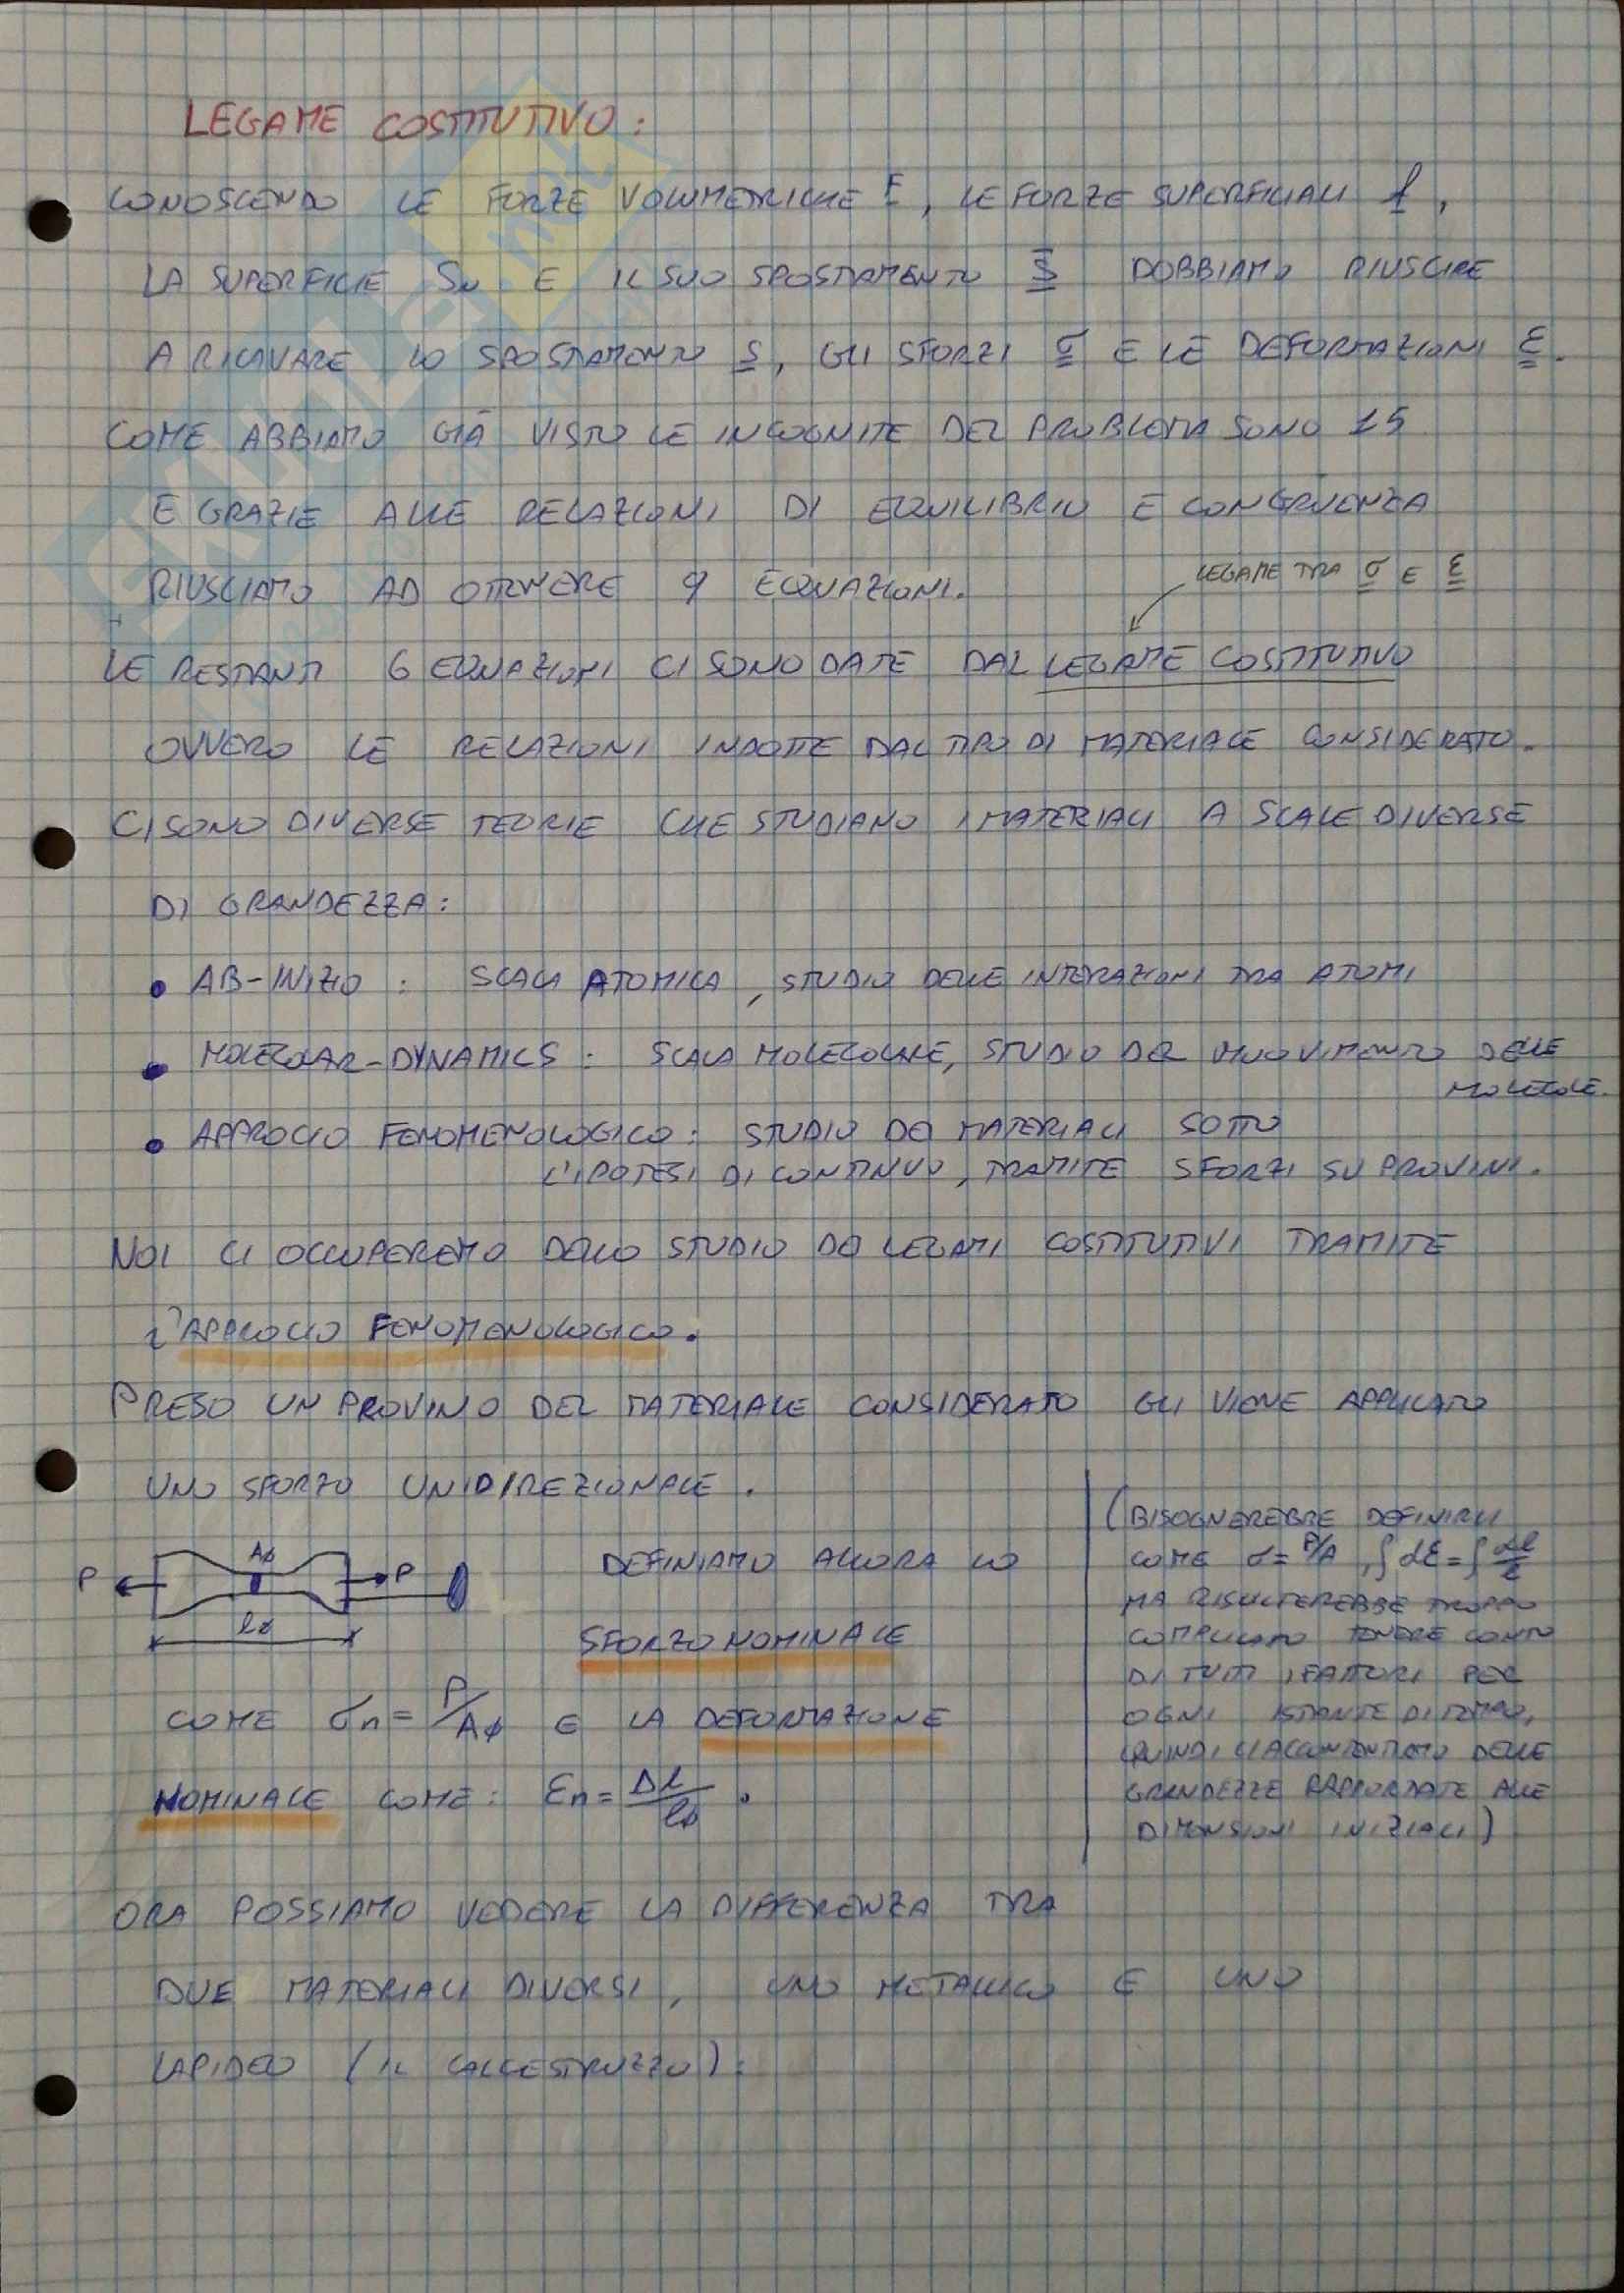 LEGAME COSTITUTIVO:
CONOSCENDO LE FORZE VOLUMETRICHE F, LE FORZE SUPERFICIALI f,
LA SUPERFICIE Su E IL SUO SPOSTAMENTO S̄ DOBBIAMO RIUSCIRE
A RICAVARE LO SPOSTAMENTO S, GLI SFORZI σ E LE DEFORMAZIONI ε.
COME ABBIAMO GIÀ VISTO LE INCOGNITE DEL PROBLEMA SONO 15
E GRAZIE ALLE RELAZIONI DI EQUILIBRIO E CONGRUENZA
RIUSCIAMO AD OTTENERE 9 EQUAZIONI.
LEGAME TRA σ E ε
LE RESTANTI 6 EQUAZIONI CI SONO DATE DAL LEGAME COSTITUTIVO
OVVERO LE RELAZIONI INDOTTE DAL TIPO DI MATERIALE CONSIDERATO.
CI SONO DIVERSE TEORIE CHE STUDIANO I MATERIALI A SCALE DIVERSE
DI GRANDEZZA:
• AB-INIZIO : SCALA ATOMICA, STUDIO DELLE INTERAZIONI TRA ATOMI
• MOLECOLAR-DYNAMICS : SCALA MOLECOLARE, STUDIO DEL MUOVIMENTO DELLE
MOLECOLE.
• APPROCCIO FENOMENOLOGICO: STUDIO DEI MATERIALI SOTTO
L'IPOTESI DI CONTINUO, TRAMITE SFORZI SU PROVINI.
NOI CI OCCUPEREMO DELLO STUDIO DEI LEGAMI COSTITUTIVI TRAMITE
L'APPROCCIO FENOMENOLOGICO.
PRESO UN PROVINO DEL MATERIALE CONSIDERATO GLI VIENE APPLICATO
UNO SFORZO UNIDIREZIONALE.
P
A∅
P
l∅
DEFINIAMO ALLORA LO
SFORZO NOMINALE
COME σn = P/A∅ E LA DEFORMAZIONE
NOMINALE COME: εn = Δl/l∅ .
(BISOGNEREBBE DEFINIRLI
COME σ = P/A, ∫dε = ∫dl/l
MA RISULTEREBBE TROPPO
COMPLICATO TENERE CONTO
DI TUTTI I FATTORI PER
OGNI ISTANTE DI TEMPO,
QUINDI CI ACCONTENTIAMO DELLE
GRANDEZZE RAPPORTATE ALLE
DIMENSIONI INIZIALI)
ORA POSSIAMO VEDERE LA DIFFERENZA TRA
DUE MATERIALI DIVERSI, UNO METALLICO E UNO
LAPIDEO (IL CALCESTRUZZO):